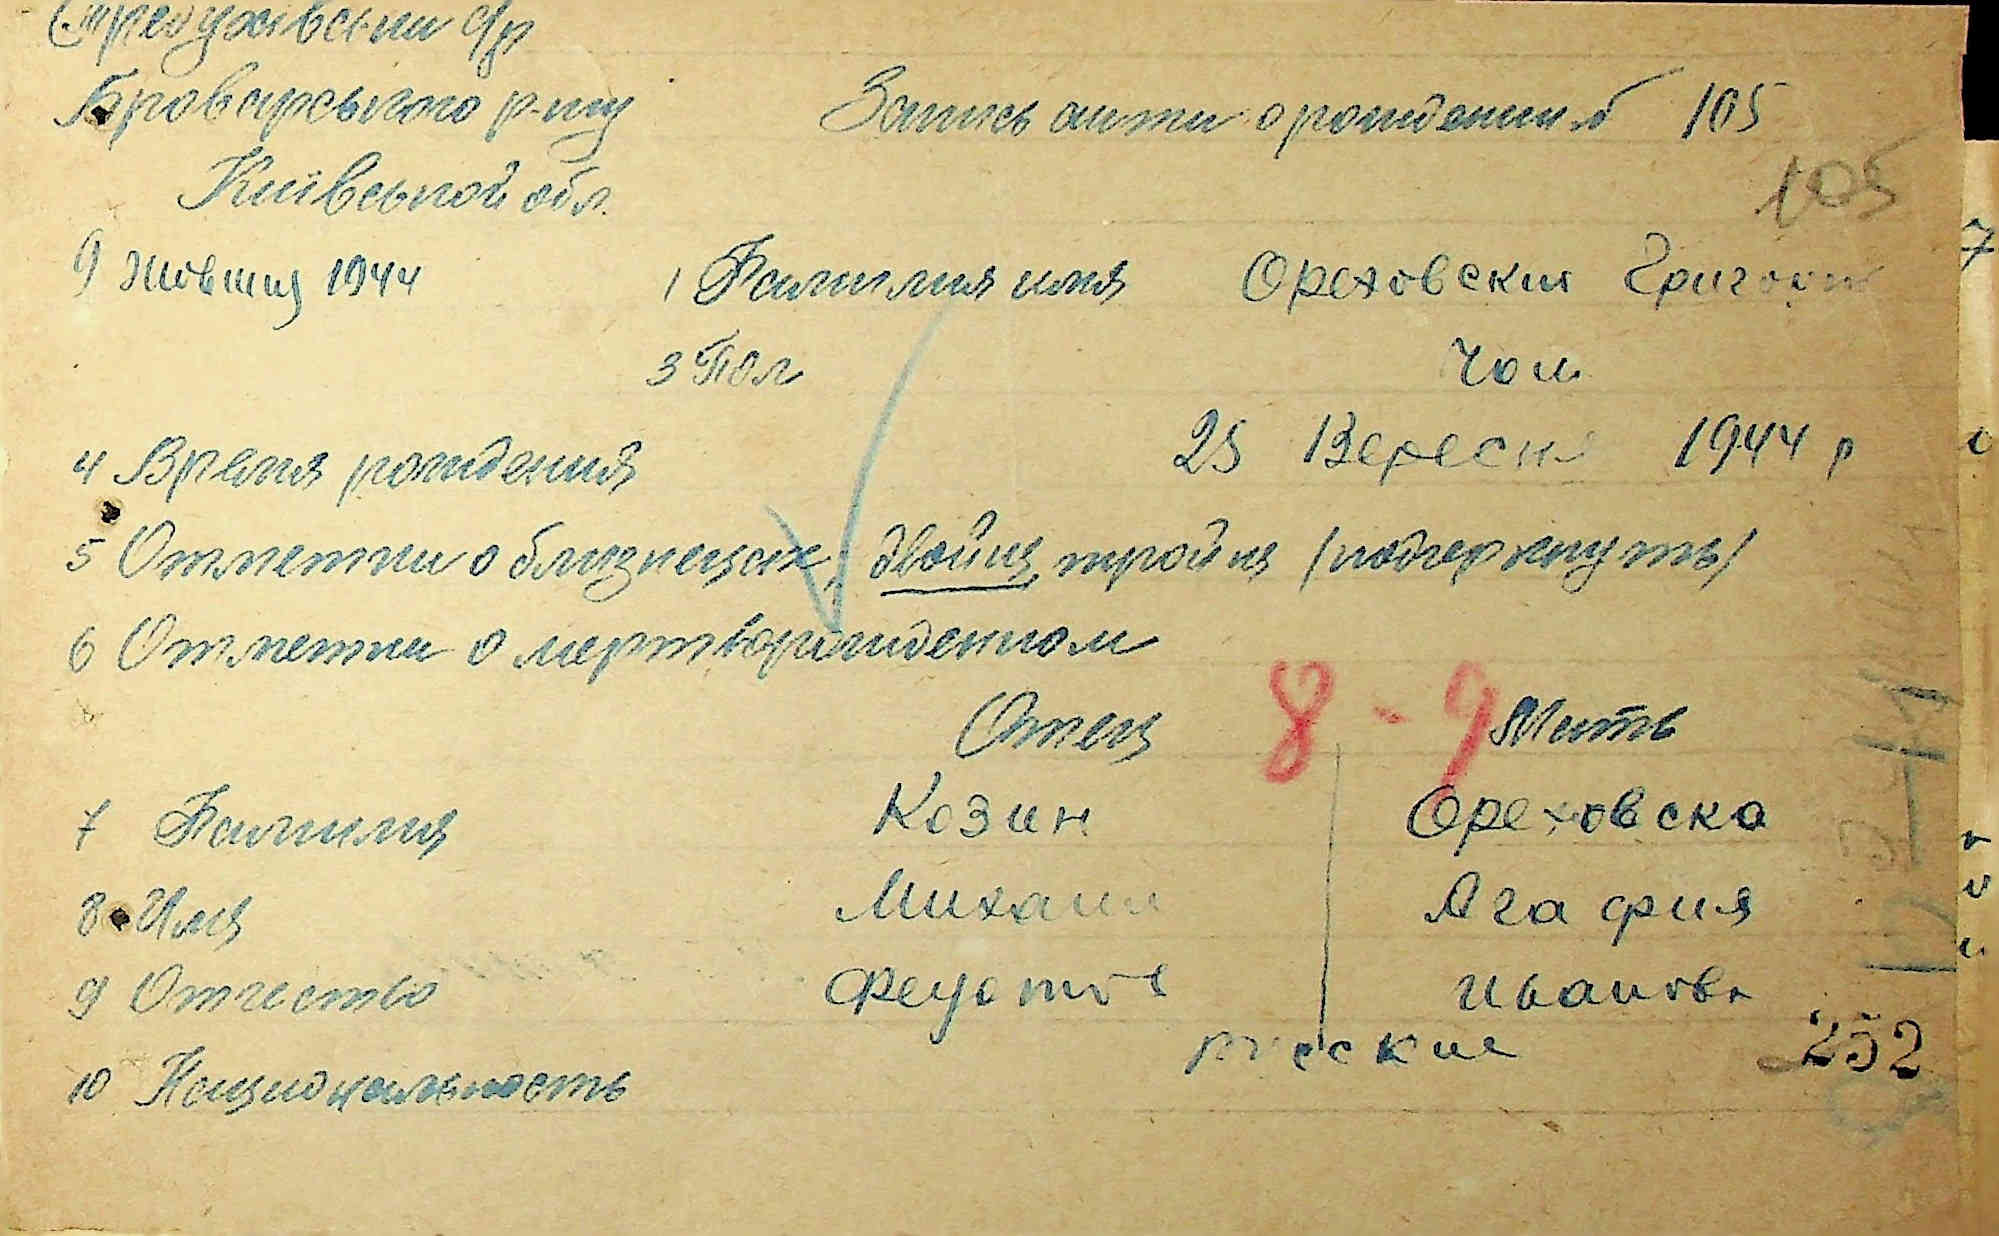 Требухівськи с/р
Броварського р-ну Запись акта о рождении № 105
Київськой обл. 105
9 жовтня 1944 1 Фамилия имя Ореховский Григорий
3 Пол чол
4 Время рождения 25 Вересня 1944 р
5 Отметки о близнецах, двойня, тройня /подчеркнуть/
6 Отметки о мертворожденном
Отец 8-9 Мать
7 Фамилия Козин Ореховска
8 Имя Михаил Агафия
9 Отчество Федотов Иванова
10 Национальность русские 252